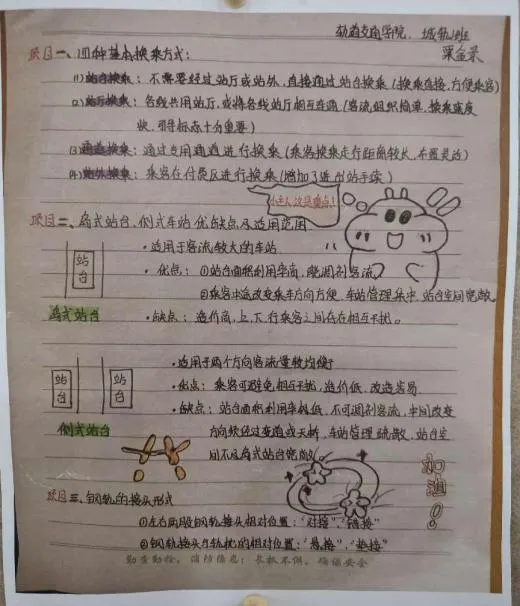 轨道交通学院、城轨1班
项目一、四种基本换乘方式：
(1)站台换乘：不需要经过站厅或站外，直接通过站台换乘(换乘直接，方便乘客)
(2)站厅换乘：各线共用站厅，或将各线站厅相互连通(客流组织简单，换乘速度
快，引导标志十分重要)
(3)通道换乘：通过专用通道进行换乘(乘客换乘走行距离较长，布置灵活)
(4)站外换乘：乘客在付费区进行换乘(增加了进出站手续)
小主人这是重点！
项目二、岛式站台、侧式车站优缺点及适用范围
站台
·适用于客流较大的车站
·优点：①站台面积利用率高，能调剂客流
②乘客中途改变乘车方向方便，车站管理集中，站台空间宽敞。
岛式站台
·缺点：造价高，上、下行乘客之间存在相互干扰。
站台 站台
·适用于两个方向客流量较均衡
·优点：乘客可避免相互干扰，造价低，改造容易
·缺点：站台面积利用率低，不可调剂客流，中间改变
侧式站台
方向须经过通道或天桥，车站管理疏散，站台空
间不及岛式站台宽敞
加油！
项目三、钢轨的接头形式
①左右两股钢轨接头相对位置：“对接”，“错接”
②钢轨接头与轨枕的相对位置：“悬接”，“垫接”
勤查勤检，消防隐患；长抓不懈，确保安全